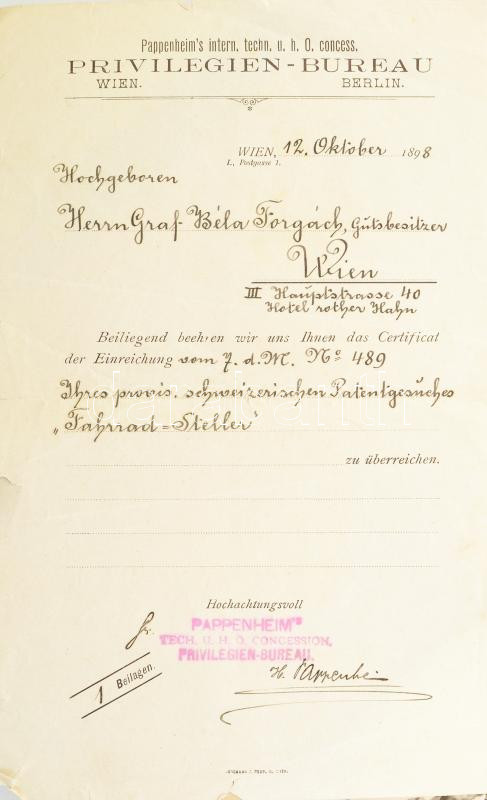 Pappenheim's intern. techn. u. h. O. concess.
PRIVILEGIEN-BUREAU
WIEN. BERLIN.
WIEN, 12. Oktober 1898
I., Postgasse 1.
Hochgeboren
Herrn Graf Béla Forgách, Gutsbesitzer
Wien
III Hauptstrasse 40
Hotel rother Hahn
Beiliegend beehren wir uns Ihnen das Certificat
der Einreichung vom 7. d. M. No 489
Ihres provis. schweizerischen Patentgesuches
„Fahrrad=Steller"
zu überreichen.
Hochachtungsvoll
fr.
PAPPENHEIM'S
TECH. U. H. O. CONCESSION.
PRIVILEGIEN-BUREAU.
H. Pappenheim
1 Beilagen.